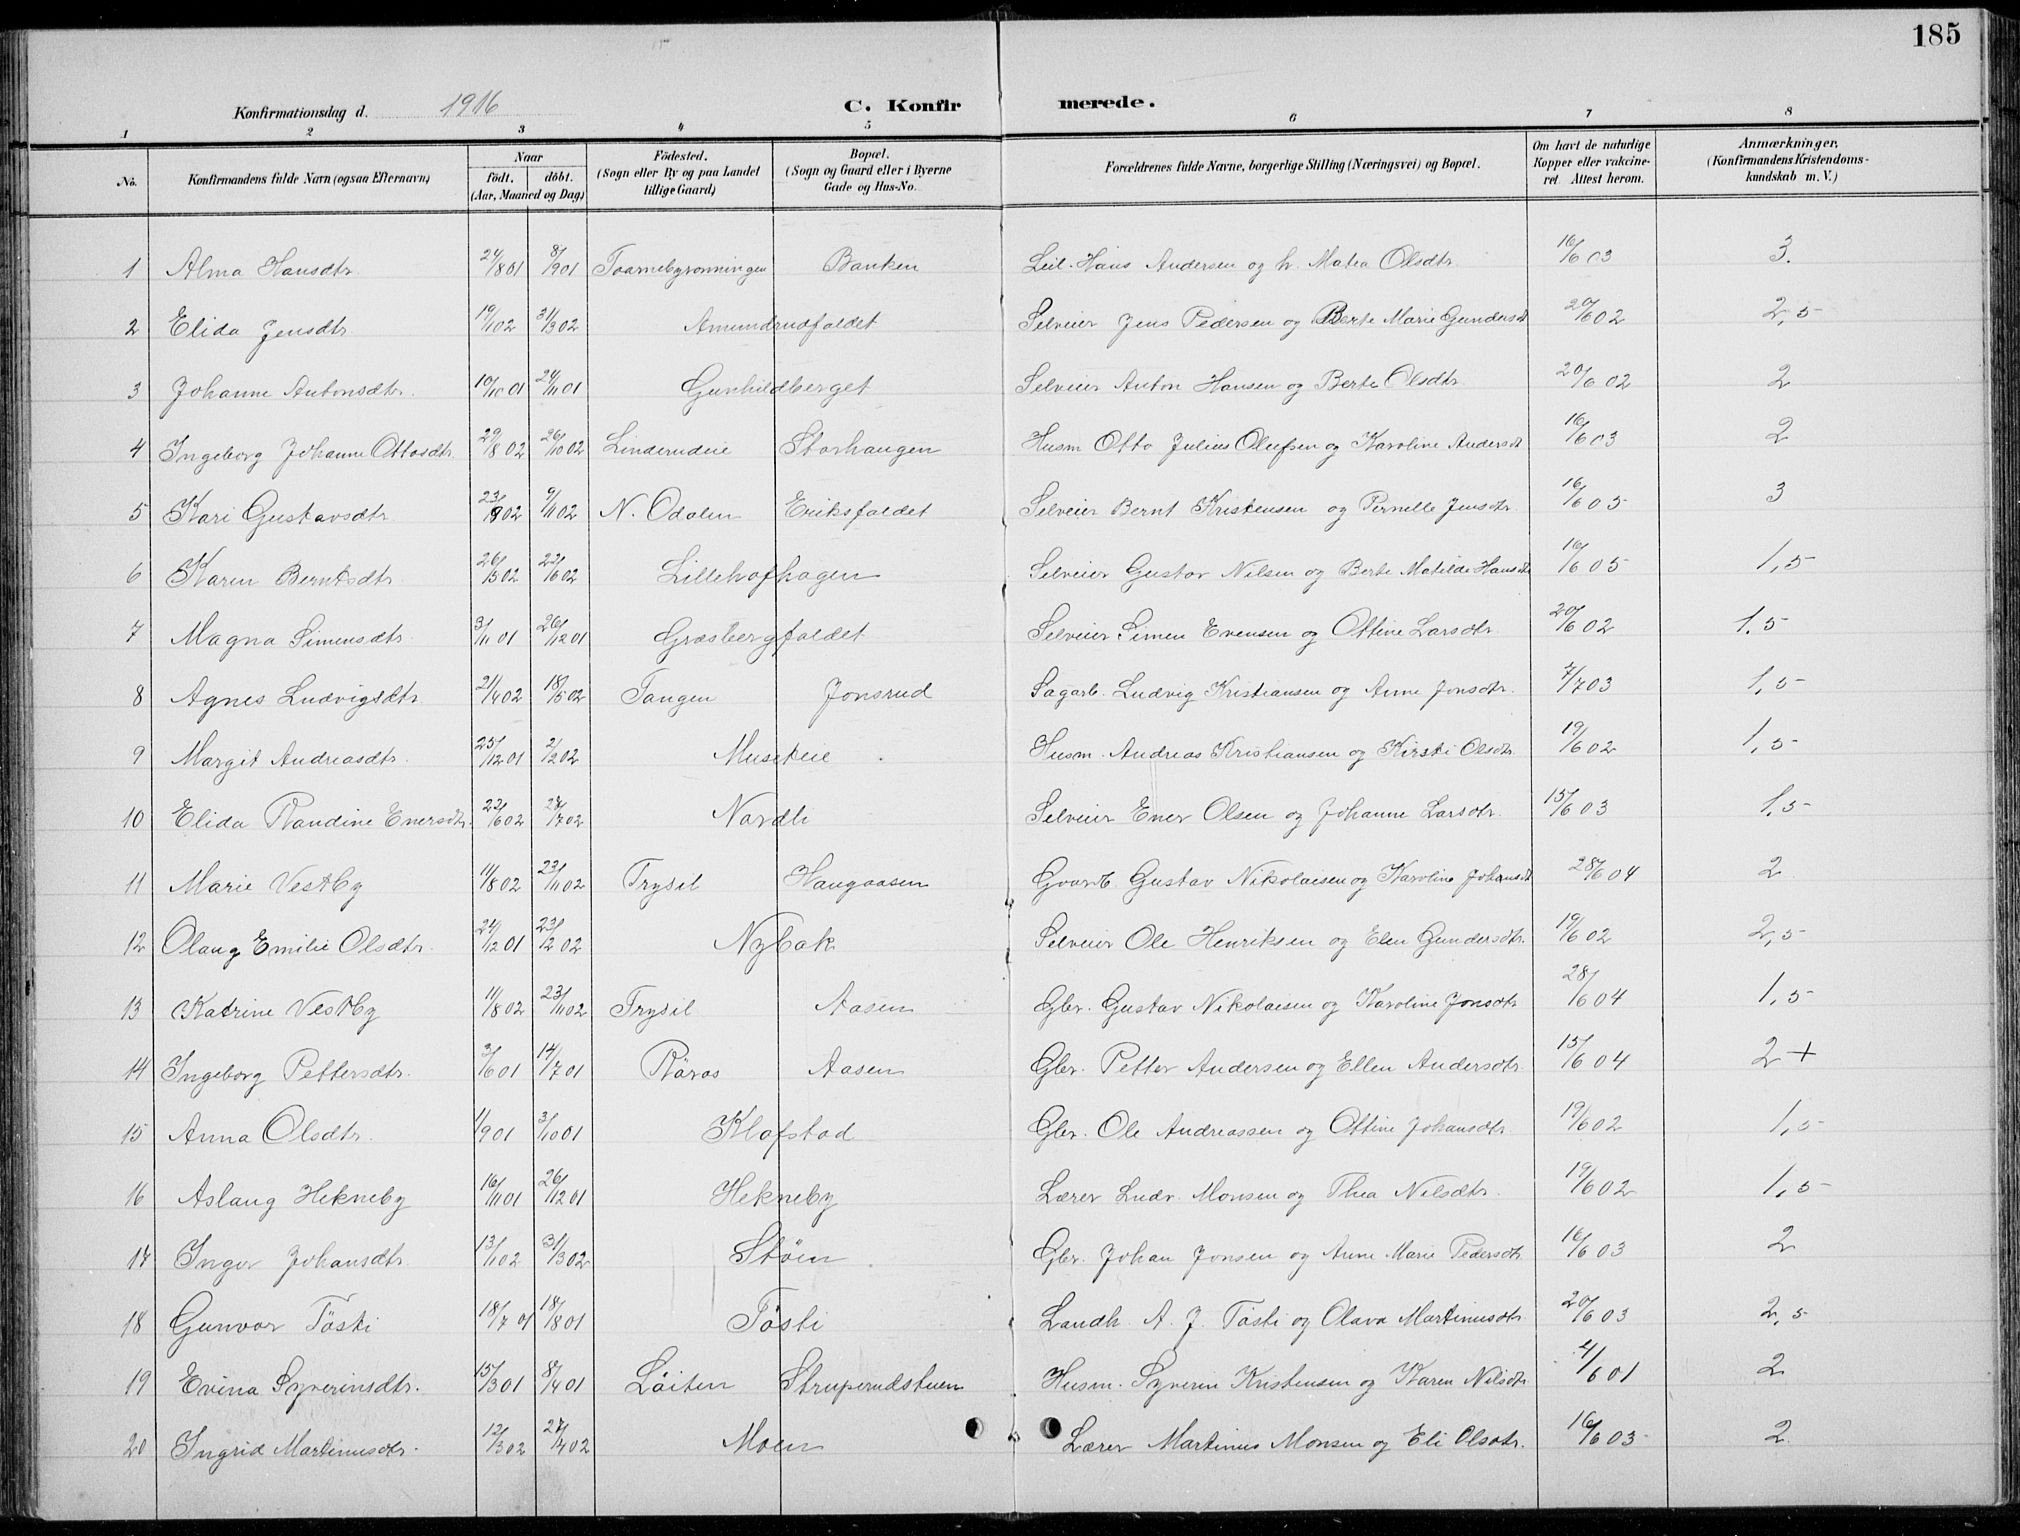 185
Konfirmationsdag d. 1916 C. Konfirmerede.
1 2 3 4 5 6 7 8
No. Konfirmandens fulde Navn (ogsaa Efternavn) Naar født. døbt. (Aar, Maaned og Dag) Fødested. (Sogn eller By og paa Landet tillige Gaard) Bopæl. (Sogn og Gaard eller i Byerne Gade og Hus-No. Forældrenes fulde Navne, borgerlige Stilling (Næringsvei) og Bopæl. Om havt de naturlige Kopper eller vakcineret. Attest herom. Anmærkninger, (Konfirmandens Kristendomskundskab m. V.)
1 Alma Hansdtr. 24/8 01 8/9 01 Taarnebyrønningen Banken Leil. Hans Andersen og h. Matea Olsdtr. 16/6 03 3.
2 Elida Jensdtr. 19/1 02 31/3 02 Amundrudfaldet Selveier Jens Pedersen og Berte Marie Gundersdt 20/6 02 2,5
3 Johanne Antonsdtr. 10/10 01 24/11 01 Gunhildberget Selveier Anton Hansen og Berte Olsdtr. 20/6 02 2
4 Ingeborg Johanne Ottosdtr. 29/8 02 26/10 02 Linderudeie Storhaugen Husm Otto Julius Olufsen og Karoline Andersdt 16/6 03 2
5 Kari Gustavsdtr. 23/9 02 9/11 02 N. Odalen Eriksfaldet Selveier Bernt Kristensen og Pernille Jensdtr. 16/6 05 3
6 Karen Berntsdtr. 26/5 02 22/6 02 Lillehofhagen Selveier Gustav Nilsen og Berte Matilde Hansdt 16/6 05 1,5
7 Magna Simensdtr. 3/11 01 26/12 01 Græsbergfaldet Selveier Simen Evensen og Ottine Larsdtr. 20/6 02 1.5
8 Agnes Ludvigsdtr. 21/4 02 18/5 02 Tangen Jonsrud Sagarb. Ludvig Kristiansen og Anne Jonsdtr. 7/7 03 1,5
9 Margit Andreasdtr. 25/12 01 2/2 02 Musekeie Husm. Andreas Kristiansen og Kirsti Olsdtr. 19/6 02 1,5
10 Elida Randine Enersdtr. 22/6 02 27/7 02 Nordli Selveier Ener Olsen og Johanne Larsdtr. 15/6 03 1,5
11 Marie Vestby 11/8 02 23/11 02 Trysil Haugaasen Gvarb. Gustav Nikolaisen og Karoline Johansdt 28/6 04 2
12 Olaug Emilie Olsdtr. 24/12 01 23/2 02 Nybak Selveier Ole Henriksen og Elen Gundersdtr. 19/6 02 2,5
13 Katrine Vestby 11/8 02 23/11 02 Trysil Aasen Gbr. Gustav Nikolaisen og Karoline Jonsdtr 28/6 04 1,5
14 Ingeborg Pettersdtr. 3/6 01 14/7 01 Røros Aasen Gbr. Petter Andersen og Ellen Andersdtr. 15/6 04 2+
15 Anna Olsdtr. 1/9 01 3/10 01 Klofstad Gbr. Ole Andreassen og Ottine Johansdtr. 19/6 02 1,5
16 Aslaug Hekneby 16/11 01 26/12 01 Hekneby Lærer Ludv. Monsen og Thea Nilsdtr. 19/6 02 1,5
17 Inger Johansdtr. 13/1 02 31/3 02 Støen Gbr. Johan Jonsen og Anne Marie Pedersdtr. 16/6 03 2
18 Gunvor Tøsti 18/7 01 18/8 01 Tøsti Landh. A. J. Tøsti og Olava Martinusdtr. 20/6 03 2,5
19 Evina Syverinsdtr. 15/3 01 8/4 01 Løiten Struperudstuen Husm. Syverin Kristensen og Karen Nilsdtr 4/6 01 2
20 Ingrid Martinusdtr. 12/3 02 27/4 02 Moen Lærer Martinus Monsen og Eli Olsdtr. 16/6 03 2